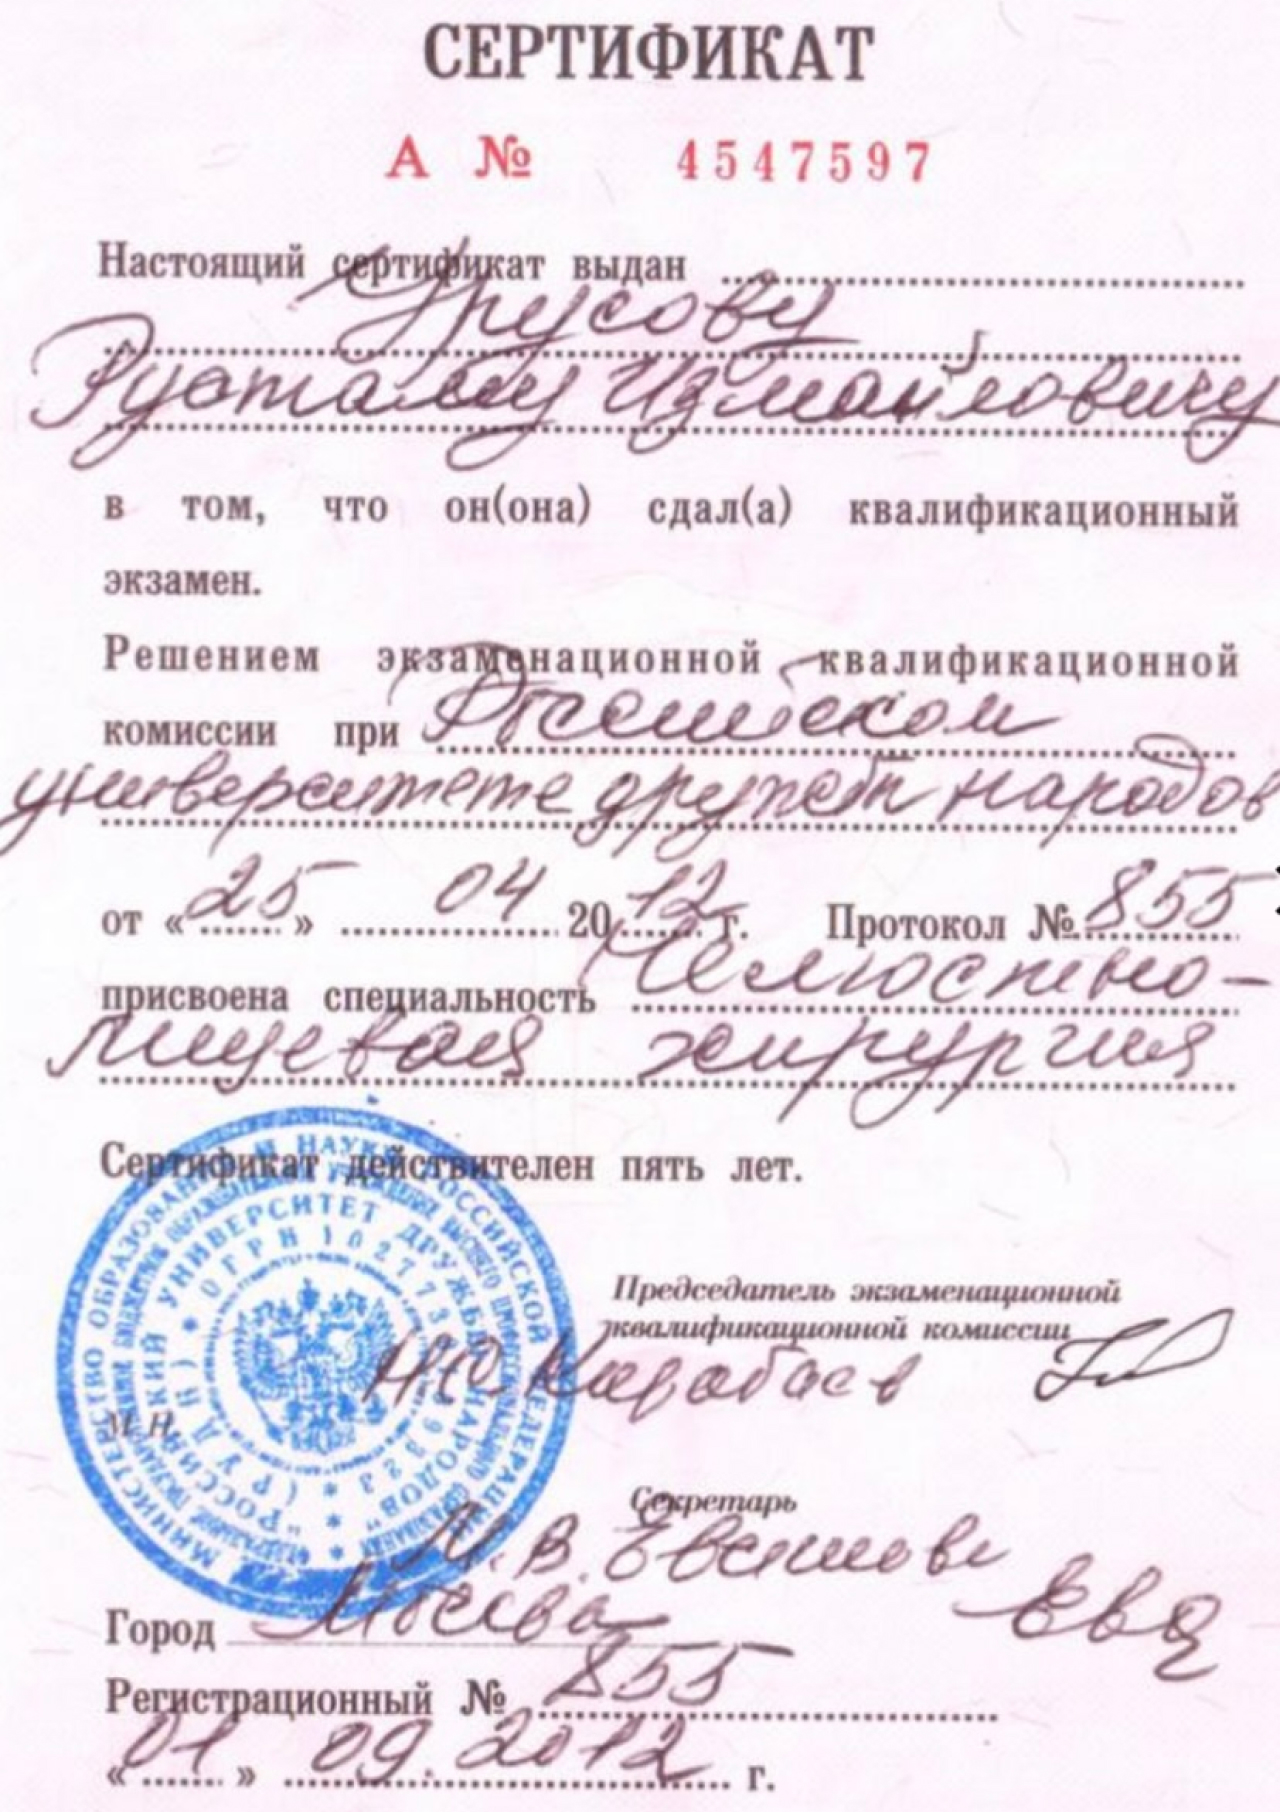 СЕРТИФИКАТ
А № 4547597
Настоящий сертификат выдан
Урусову
Рустаму Измайловичу
в том, что он(она) сдал(а) квалификационный
экзамен.
Решением экзаменационной квалификационной
комиссии при Российском
университете дружбы народов
от «25» 04 2012 г. Протокол № 855
присвоена специальность Челюстно-
лицевая хирургия
Сертификат действителен пять лет.
МИНИСТЕРСТВО ОБРАЗОВАНИЯ И НАУКИ РОССИЙСКОЙ ФЕДЕРАЦИИ
"РОССИЙСКИЙ УНИВЕРСИТЕТ ДРУЖБЫ НАРОДОВ"
(РУДН) * ОГРН
Председатель экзаменационной
квалификационной комиссии
Карабаев
М.П.
Секретарь
Город Москва
Регистрационный № 855
«01» 09. 2012 г.